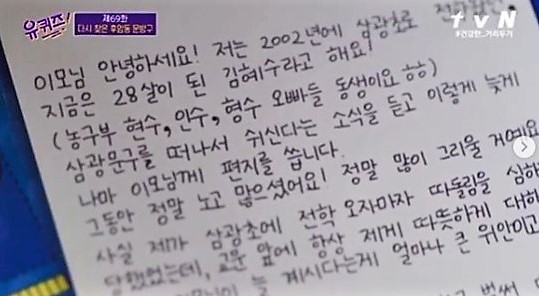 유퀴즈!
제69화
다시 찾은 후암동 문방구
tvN
#건강한_거리두기
이모님 안녕하세요! 저는 2002년에 삼광초로
지금은 28살이 된 김혜수라고 해요!
(농구부 현수, 인수, 형수 오빠들 동생이요 ㅎㅎ)
삼광문구를 떠나서 쉬신다는 소식을 듣고 이렇게 늦게
나마 이모님께 편지를 씁니다.
그동안 정말 노고 많으셨어요! 정말 많이 그리울 거예요
사실 제가 삼광초에 전학 오자마자 따돌림을 심하
당했었는데, 교문 앞에 항상 제게 따뜻하게 대해
계시다는게 얼마나 큰 위안이고